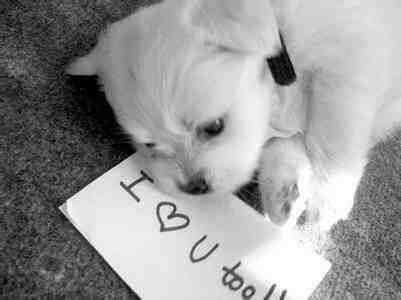 I ♡ U too!!